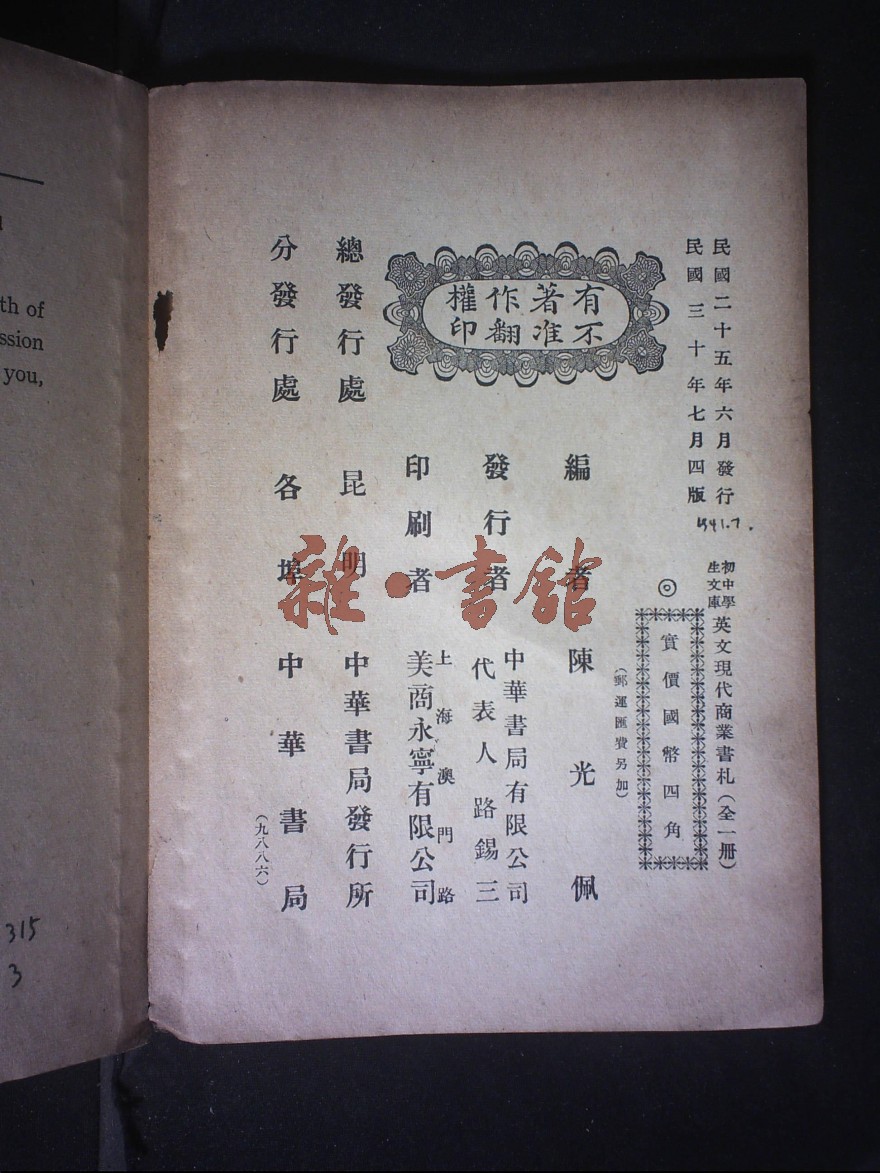 民國二十五年六月發行
民國三十年七月四版
1941.7.
初中學生文庫
英文現代商業書札(全一册)
◎實價國幣四角
(郵運匯費另加)
有著作權
不准翻印
編者 陳光佩
發行者 中華書局有限公司
代表人路錫三
印刷者 上海澳門路
美商永寧有限公司
總發行處 昆明 中華書局發行所
分發行處 各埠 中華書局
(九八八六)
雜·書館
th of
ssion
you,
315
3